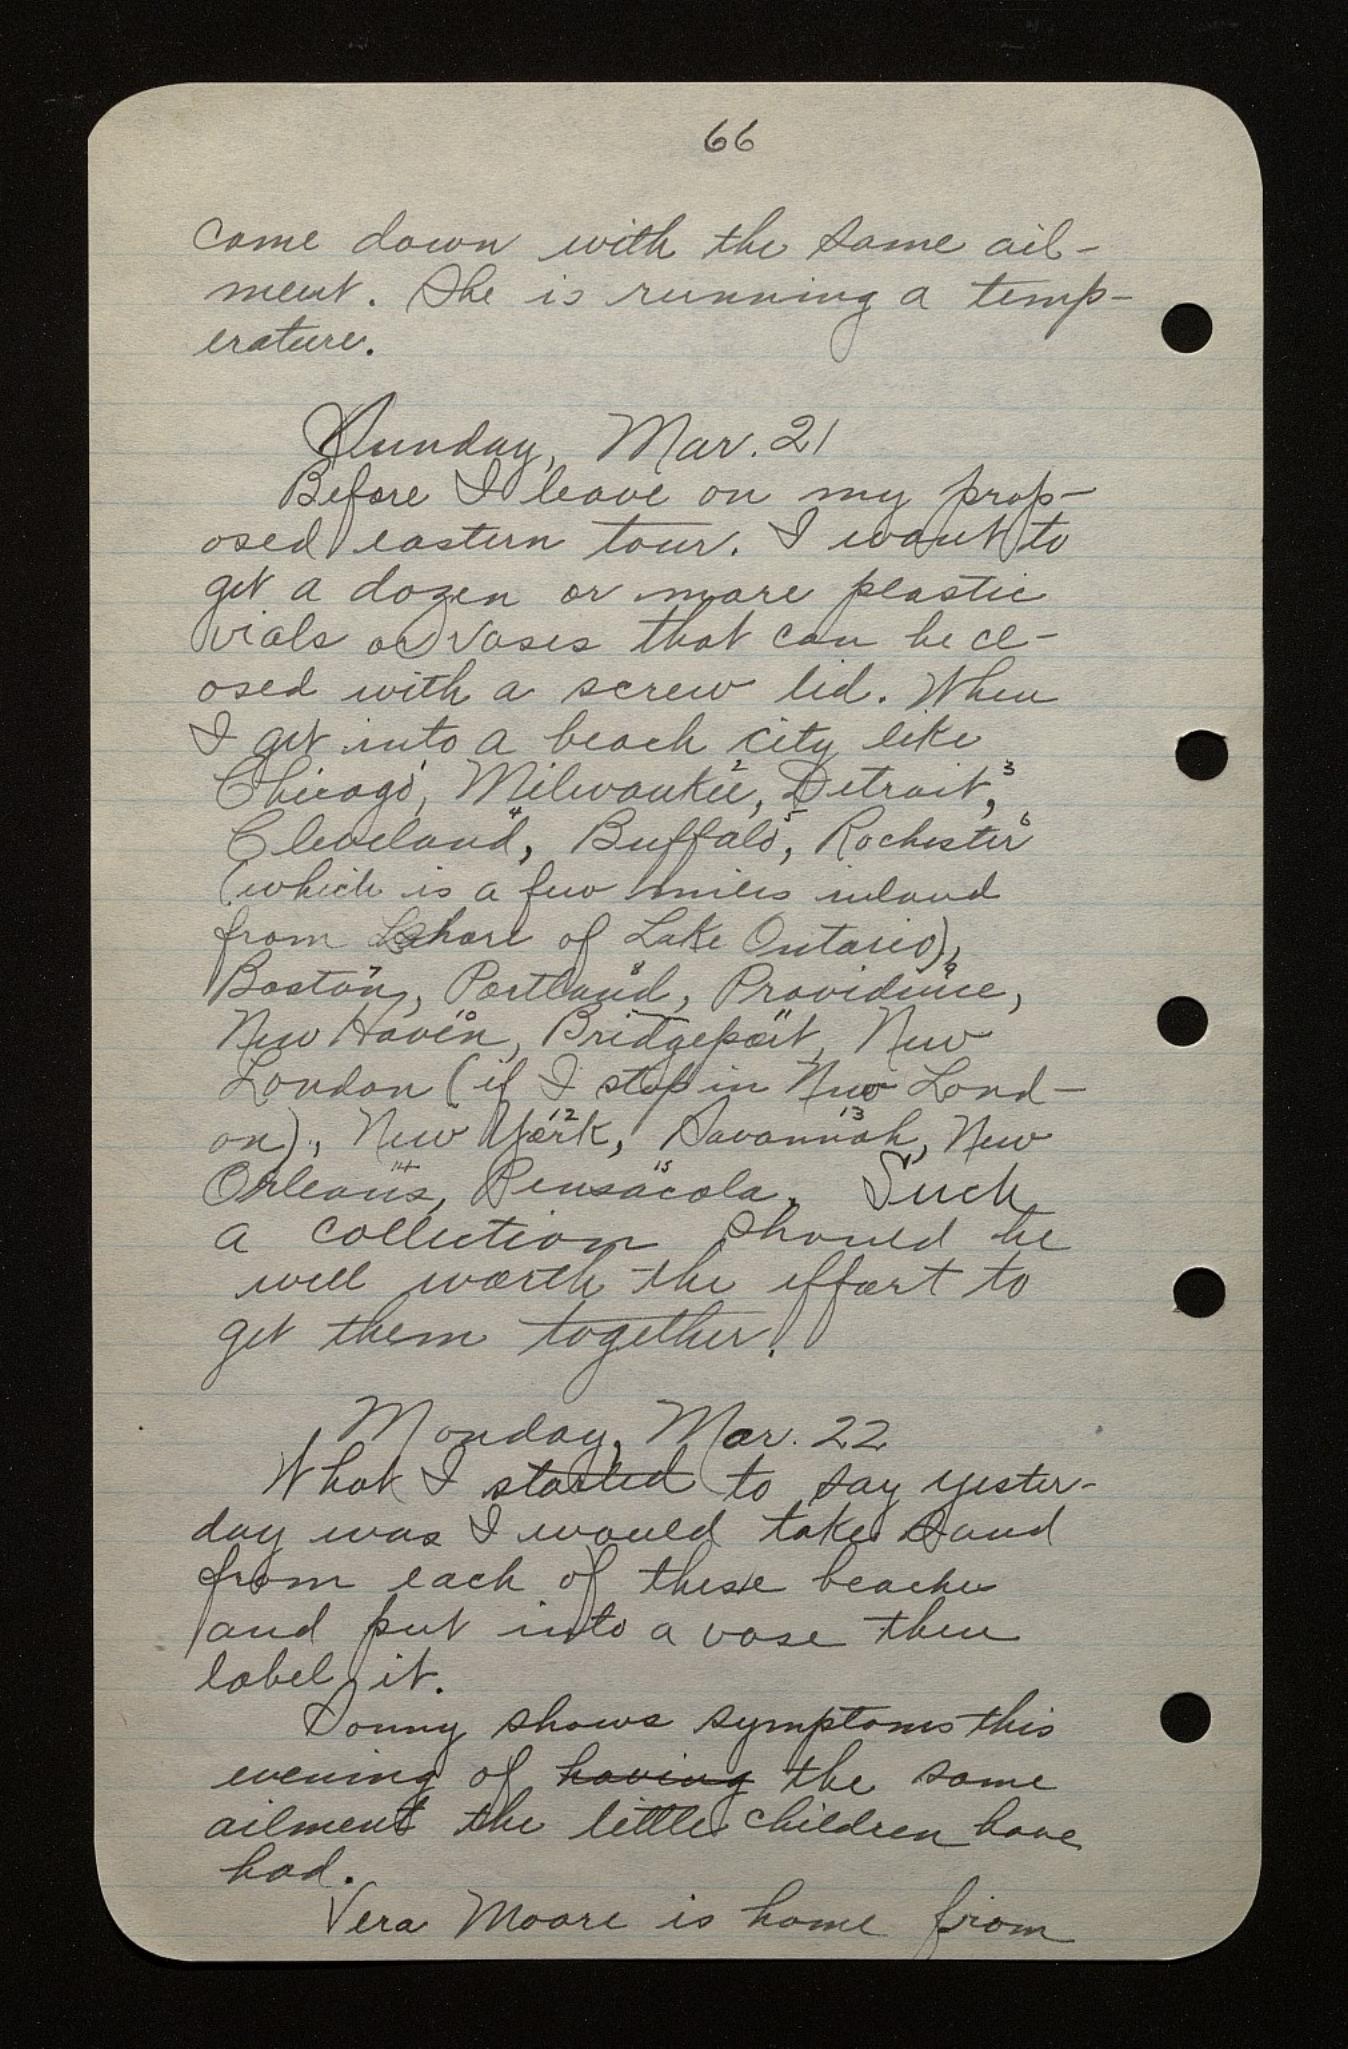 66
come down with the same ail-
ment. She is running a temp-
erature.
Sunday, Mar. 21
Before I leave on my prop-
osed eastern tour. I want to
get a dozen or more plastic
vials or vases that can be cl-
osed with a screw lid. When
I get into a beach city like
Chicago¹, Milwaukee², Detroit,³
Cleveland⁴, Buffalo⁵, Rochester⁶
(which is a few miles inland
from shore of Lake Ontario),
Boston⁷, Portland⁸, Providence⁹,
New Haven¹⁰, Bridgeport¹¹, New
London (if I stop in New Lond-
on), New York¹², Savannah¹³, New
Orleans¹⁴, Pensacola¹⁵. Such
a collection should be
well worth the effort to
get them together.
Monday, Mar. 22
What I started to say yester-
day was I would take sand
from each of these beaches
and put into a vase then
label it.
Donny shows symptoms this
evening of having the same
ailment the little children have
had.
Vera Moore is home from